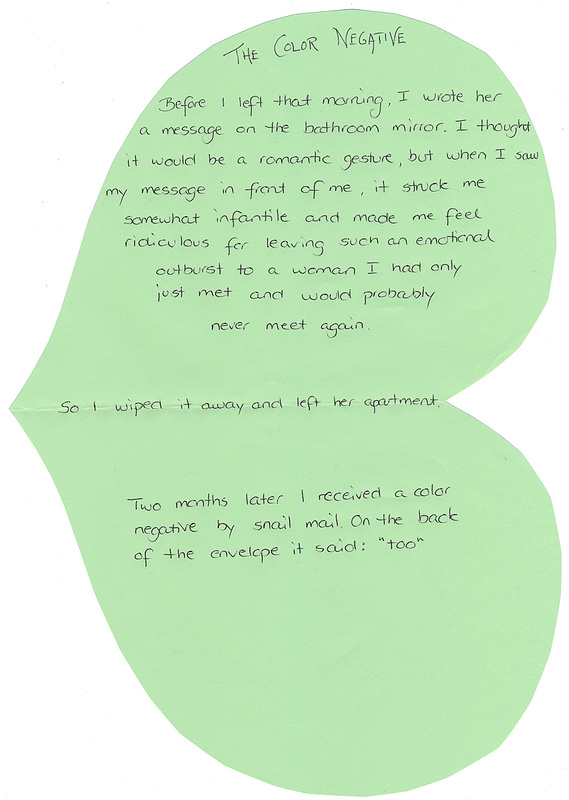 THE COLOR NEGATIVE
Before I left that morning, I wrote her
a message on the bathroom mirror. I thought
it would be a romantic gesture, but when I saw
my message in front of me, it struck me
somewhat infantile and made me feel
ridiculous for leaving such an emotional
outburst to a woman I had only
just met and would probably
never meet again.
So I wiped it away and left her apartment.
Two months later I received a color
negative by snail mail. On the back
of the envelope it said: "too"